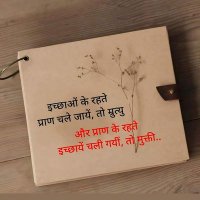 इच्छाओं के रहते
प्राण चले जायें, तो म्रुत्यु
और प्राण के रहते
इच्छायें चली गयीं, तो मुक्ती..